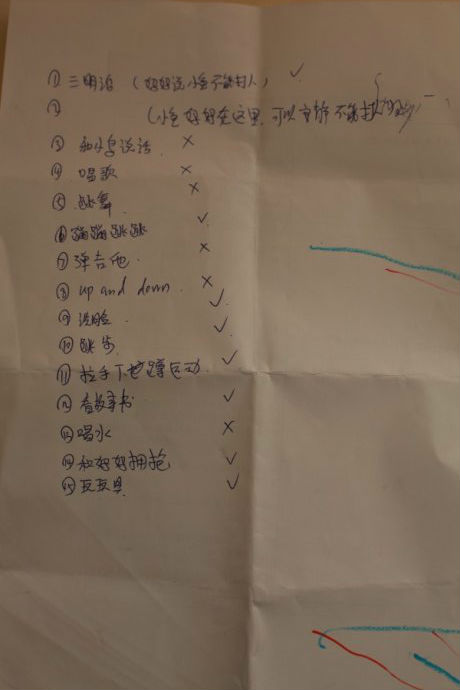 ① 三明治 (好好说 小鱼不能打人) ✓
② (小鱼 好好在这里, 可以 不能打
③ 和小鸟说话 ×
④ 唱歌 ×
⑤ 跳舞 ×
⑥ 蹦蹦跳跳 ✓
⑦ 弹吉他 ×
⑧ up and down ×
⑨ 洗脸 ✓
⑩ 跑步 ✓
⑪ 拉手下蹲运动 ✓
⑫ 看故事书 ✓
⑬ 喝水 ×
⑭ 和好好拥抱 ✓
⑮ 玩玩具 ✓